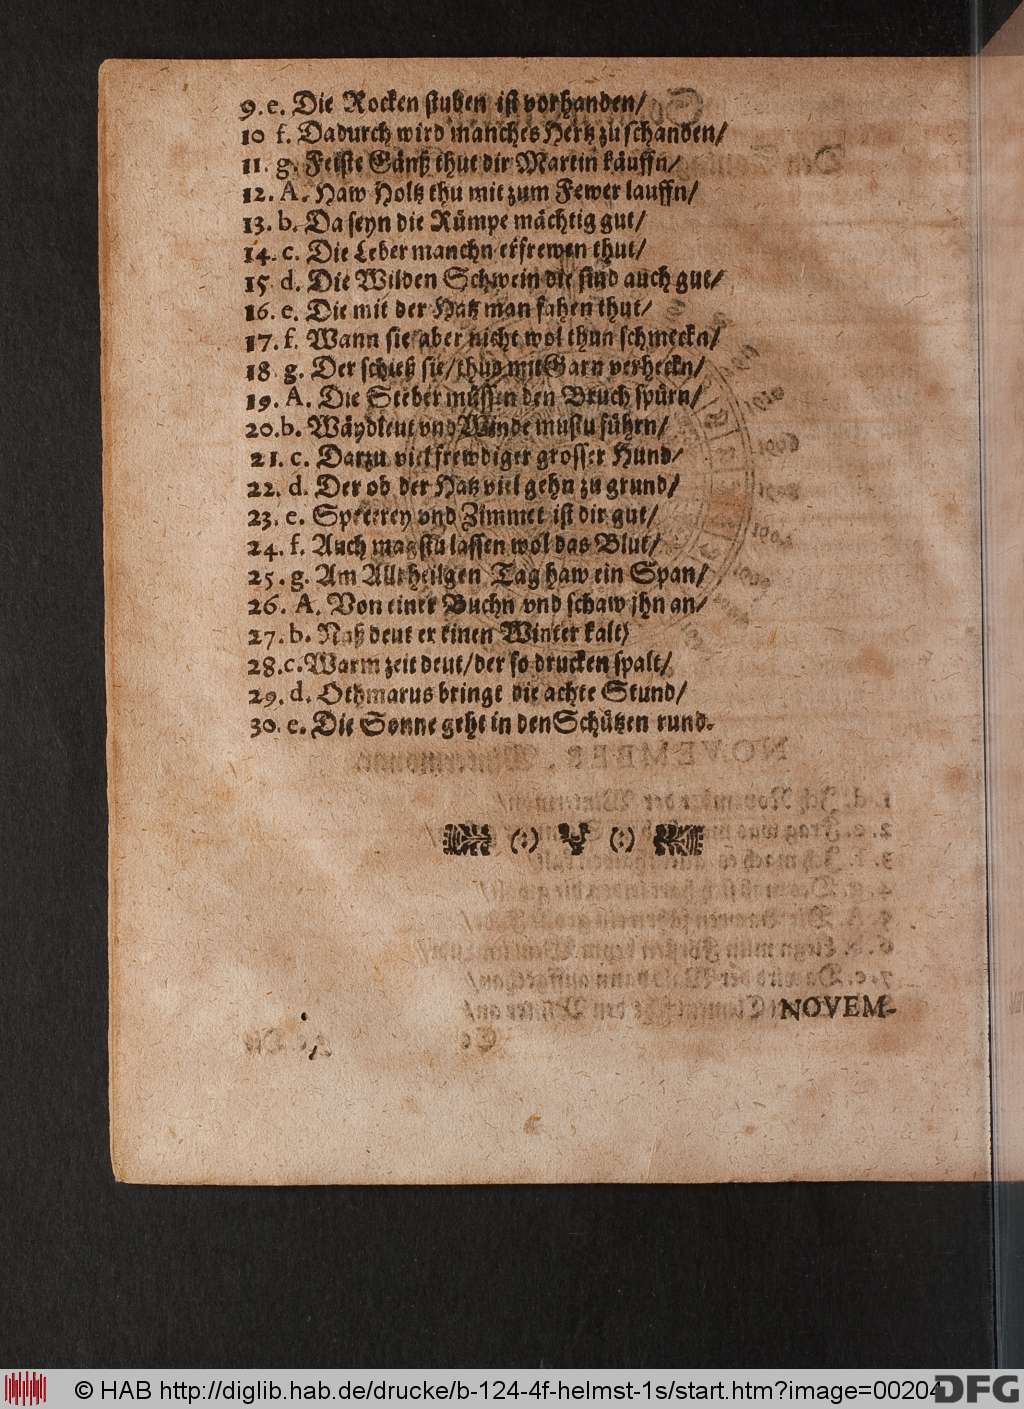 9. e. Die Rocken stuben ist vorhanden/
10 f. Dadurch wird manches Hertz zu schanden/
11. g. Feiste Gänß thut dir Martin käuffn/
12. A. Haw Holtz thu mit zum Fewer lauffn/
13. b. Da seyn die Rümpe mächtig gut/
14. c. Die Leber manchn erfrewen thut/
15 d. Die Wilden Schwein die sind auch gut/
16. e. Die mit der Hatz man fahen thut/
17. f. Wann sie aber nicht wol thun schmeckn/
18 g. Der schieß sie/ thus mit Garn verheckn/
19. A. Die Steber müssen den Bruch spürn/
20. b. Wäydleut vnd Winde mustu führn/
21. c. Darzu viel frewdiger grosser Hund/
22. d. Der ob der Hatz viel gehn zu grund/
23. e. Specerey vnd Zimmet ist dir gut/
24. f. Auch magstu lassen wol das Blut/
25. g. Am Allrheilgen Tag haw ein Span/
26. A. Von einer Buchn vnd schaw jhn an/
27. b. Naß deut er einen Winter kalt)
28. c. Warm zeit deut/ der so drucken spalt/
29. d. Othmarus bringt die achte Stund/
30. e. Die Sonne geht in den Schützen rund.
NOVEM-
© HAB http://diglib.hab.de/drucke/b-124-4f-helmst-1s/start.htm?image=00204
DFG